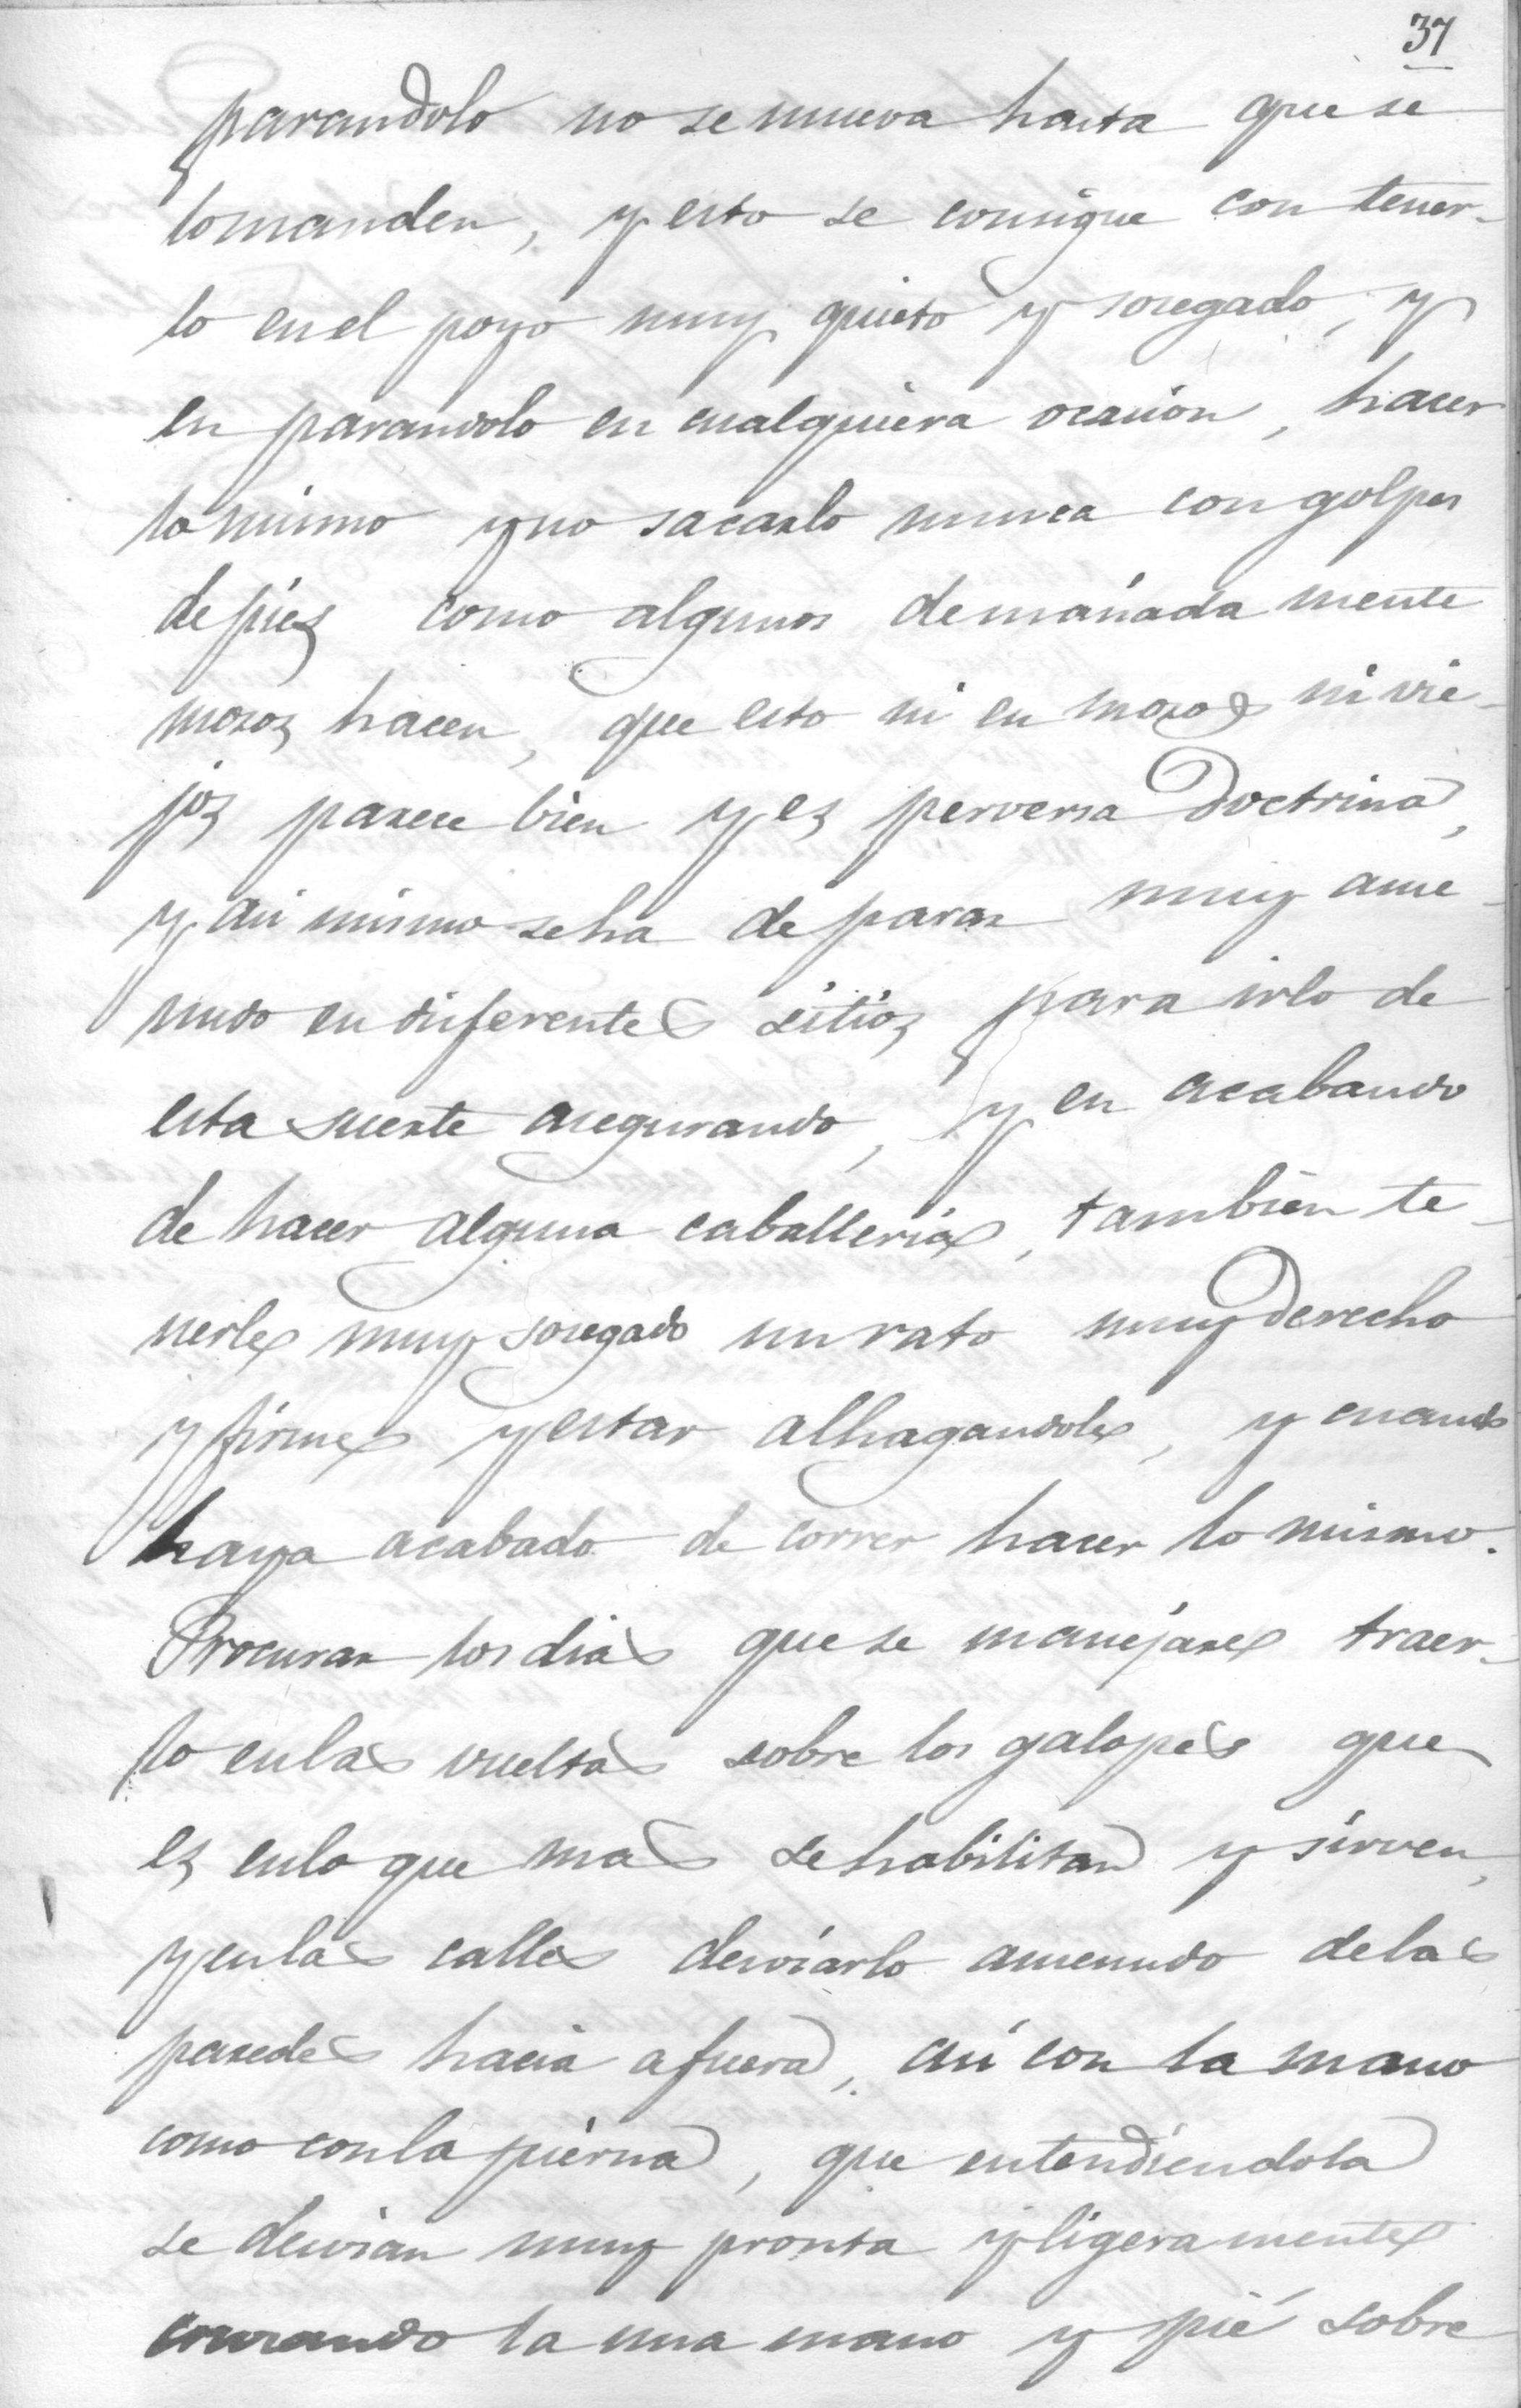 37
parandolo no se mueva hasta que se
lomanden, y esto se consigue con tener-
lo en el poyo muy quieto y sosegado, y
en parandolo en cualquiera ocasión, hacer
lo mismo y no sacarlo nunca con golpes
de pies como algunos desmañada mente
mozos hacen, que esto ni en mozos ni vie-
jos parece bien y es perversa Doctrina,
y asi mismo se ha de parar muy ame-
nudo en diferentes sitios para irlo de
esta suerte asegurando, y en acabando
de hacer alguna caballeria, tambien te-
nerle muy sosegado un rato muy Derecho
y firme y estar alhagandole, y cuando
haya acabado de correr hacer lo mismo.
Procurar los dias que se manejare traer-
lo en las vueltas sobre los galopes que
es en lo que mas se habilitan y sirven,
y en las calles desviarlo amenudo de las
paredes hacia afuera, asi con la mano
como con la pierna, que entendiendola
se desvian muy pronta y ligera mente
cruzando la una mano y pié sobre